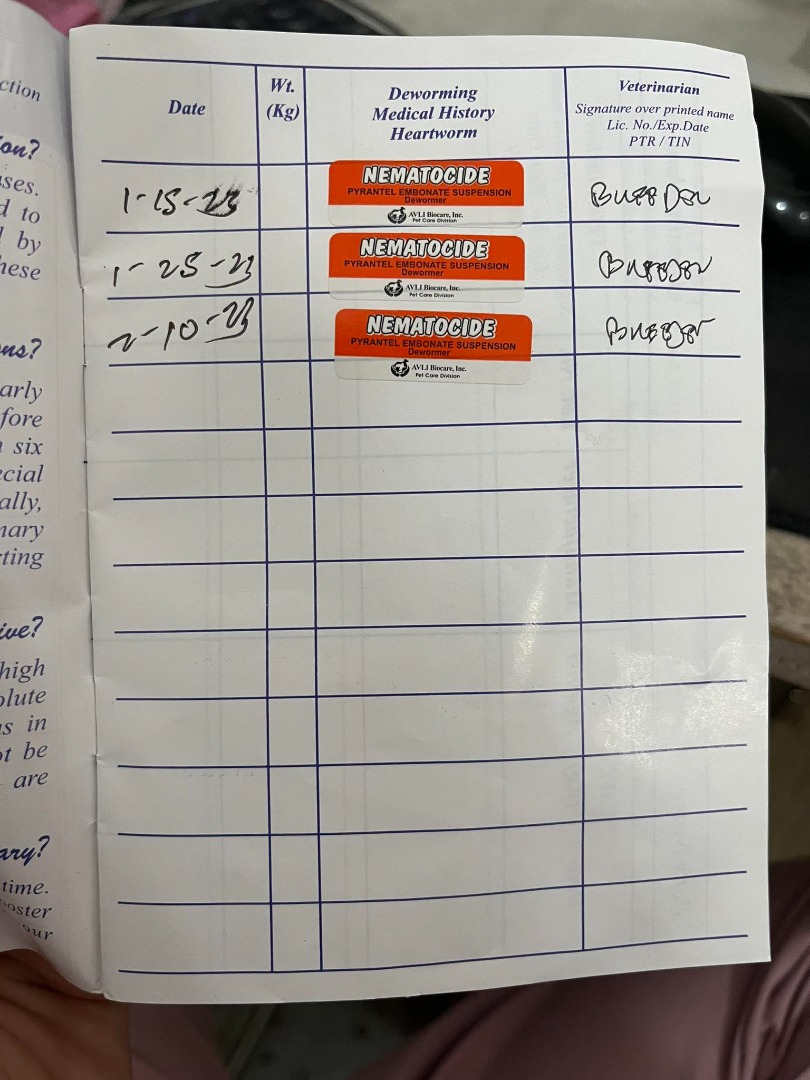 ction
on?
ses.
d to
l by
hese
ns?
arly
fore
six
ecial
ally,
nary
rting
ive?
high
olute
s in
ot be
are
ary?
time.
ooster
our
Date
Wt.
(Kg)
Deworming
Medical History
Heartworm
Veterinarian
Signature over printed name
Lic. No./Exp.Date
PTR / TIN
1-15-23
NEMATOCIDE
PYRANTEL EMBONATE SUSPENSION
Dewormer
AVLI Biocare, Inc.
Pet Care Division
Breeder
1-25-23
NEMATOCIDE
PYRANTEL EMBONATE SUSPENSION
Dewormer
AVLI Biocare, Inc.
Pet Care Division
Breeder
2-10-23
NEMATOCIDE
PYRANTEL EMBONATE SUSPENSION
Dewormer
AVLI Biocare, Inc.
Pet Care Division
Breeder